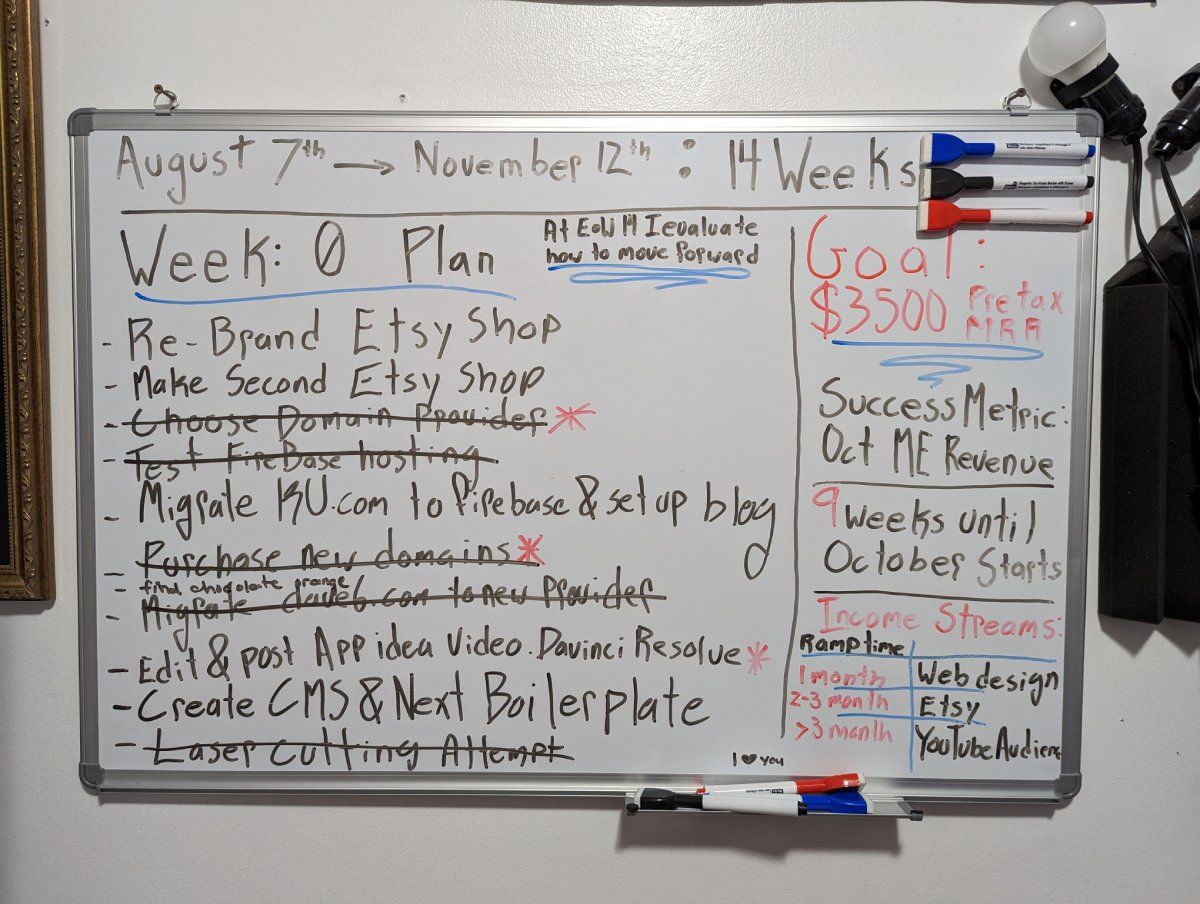 August 7th → November 12th : 14 Weeks
Week: 0 Plan
At EoW 14 I evaluate
how to move forward
- Re-Brand Etsy Shop
- Make Second Etsy Shop
- Choose Domain Provider *
- Test FireBase hosting
- Migrate KU.com to firebase & set up blog
- Purchase new domains *
- find chocolate orange
- Migrate dave6.com to new Provider
- Edit & post App idea Video. Davinci Resolve *
- Create CMS & Next Boilerplate
- Laser Cutting Attempt
I ♥ You
Goal:
$3500 Pre tax
MRR
Success Metric:
Oct ME Revenue
9 weeks until
October Starts
Income Streams:
Ramp time
1 month Web design
2-3 month Etsy
>3 month YouTube Audience